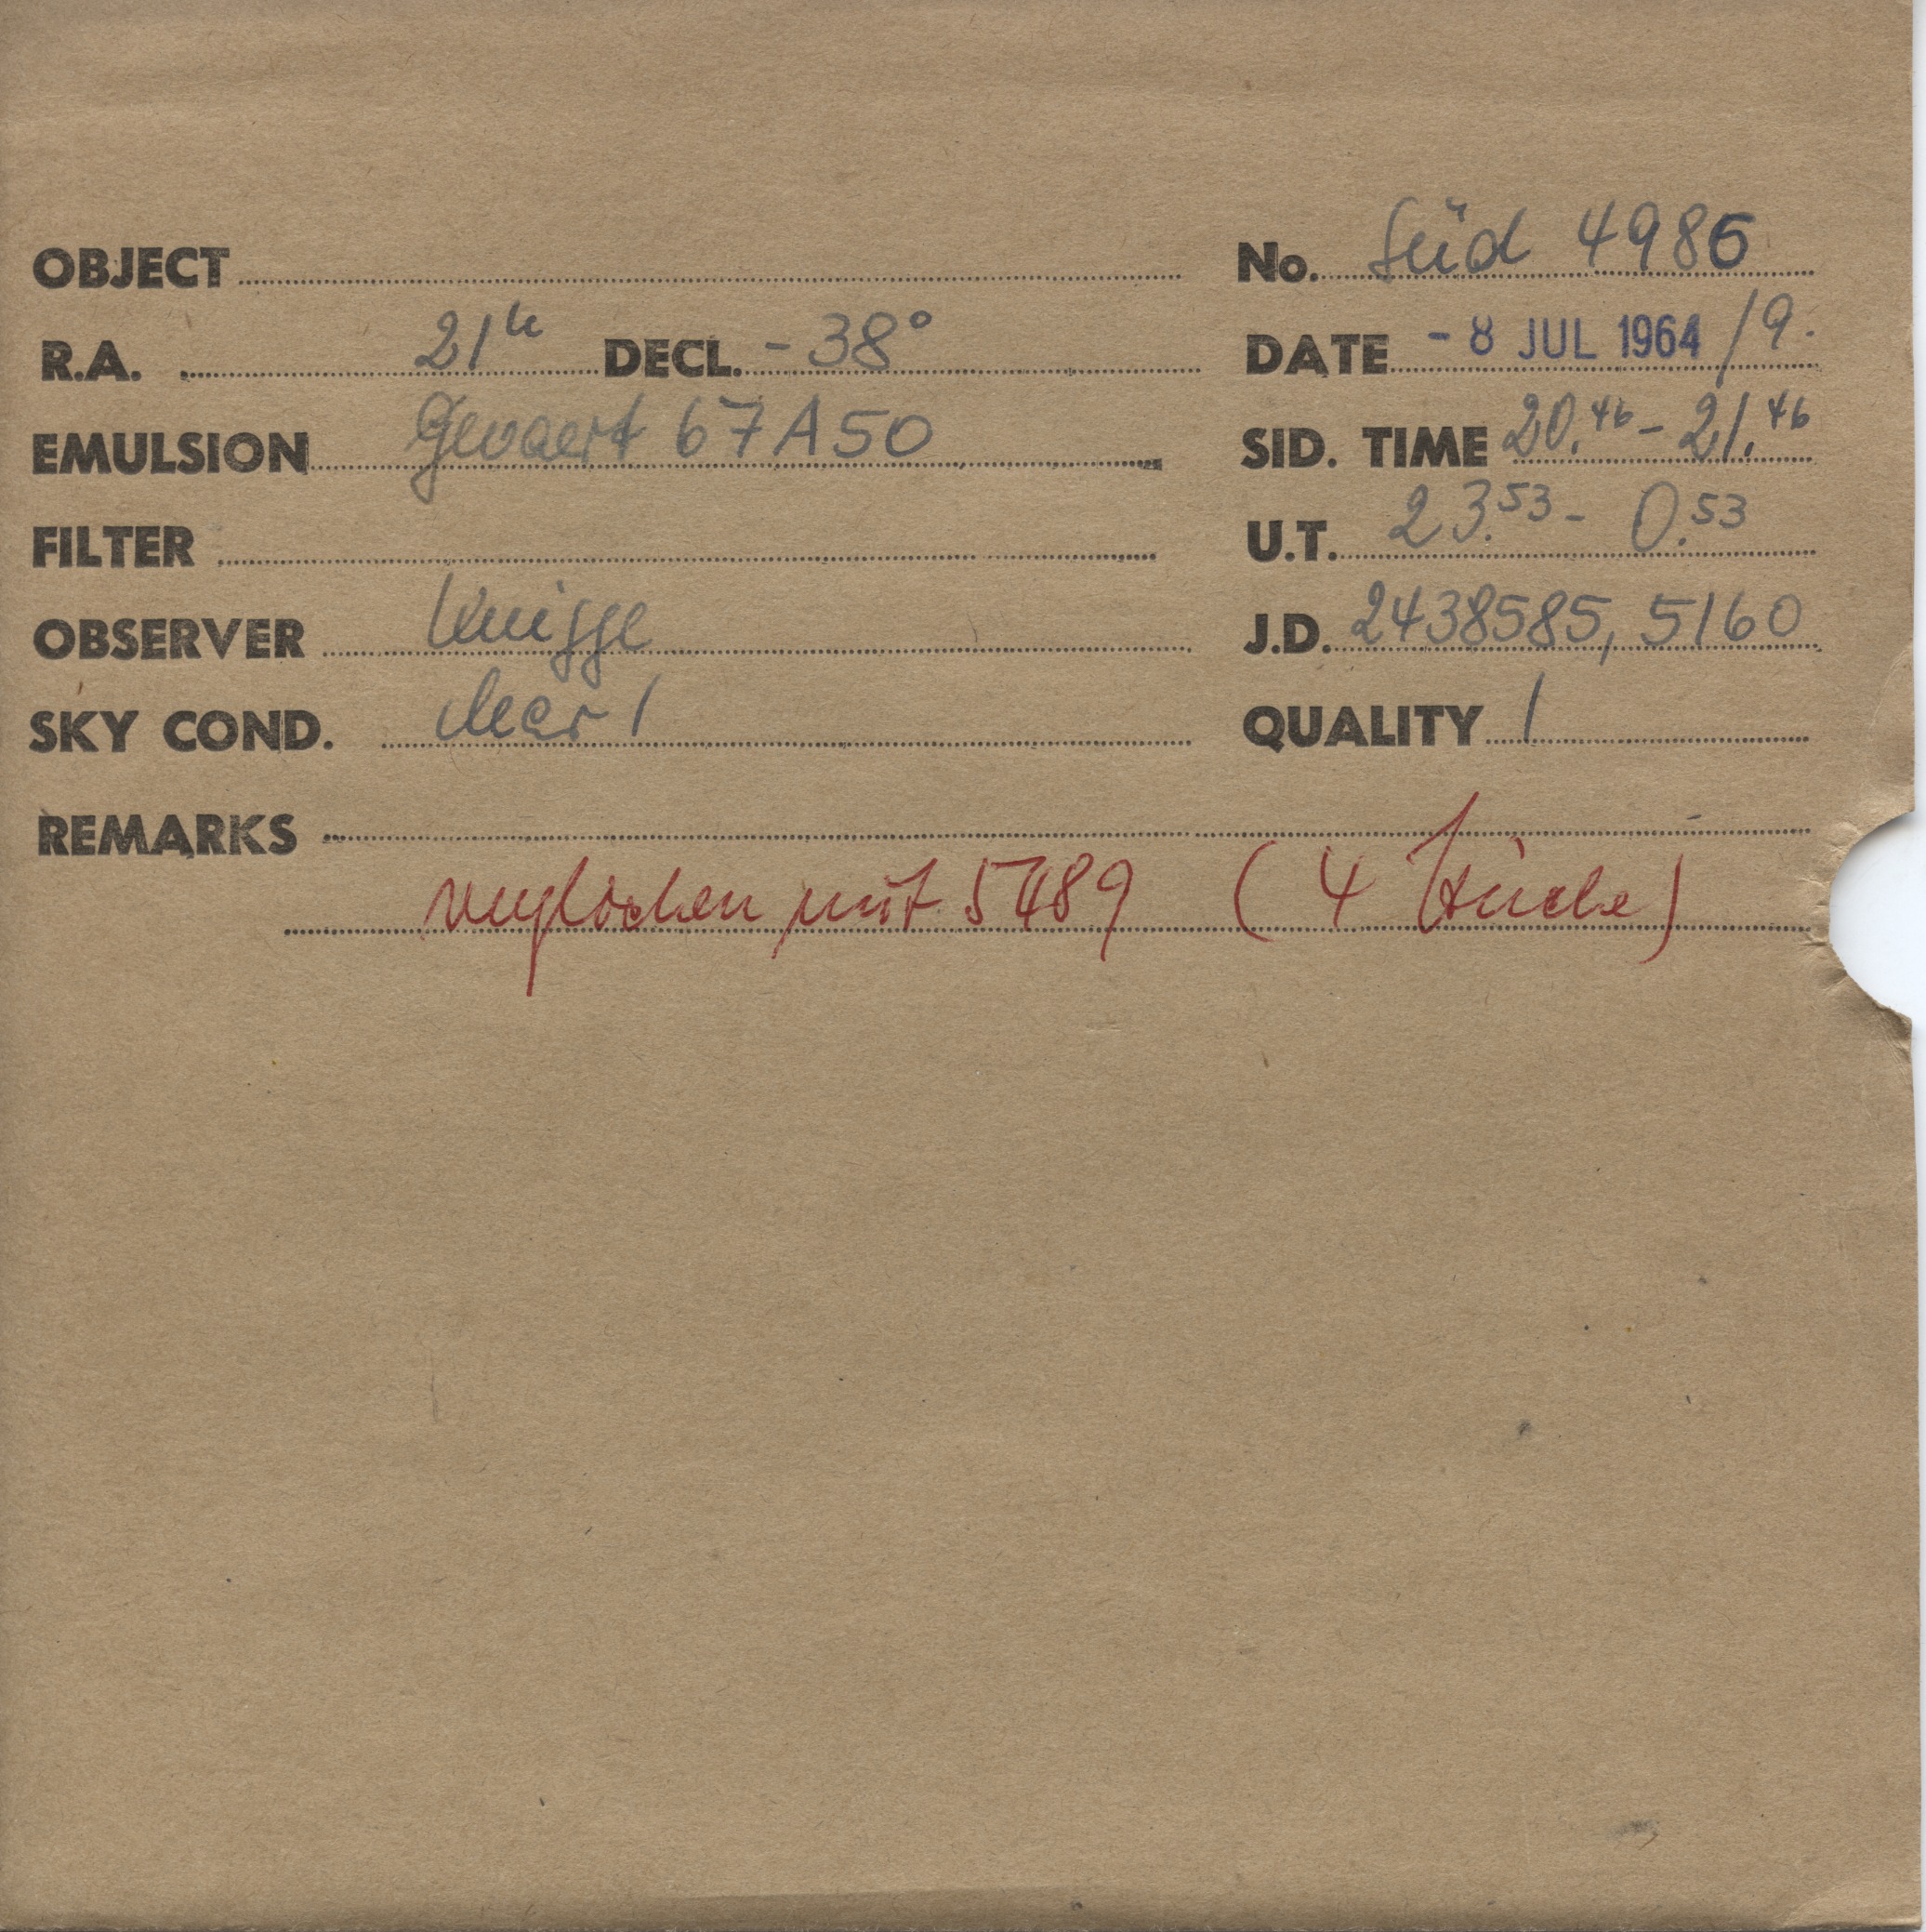 OBJECT No. Süd 4986
R.A. 21h DECL. -38° DATE - 8 JUL 1964 /9.
EMULSION Gevaert 67A50 SID. TIME 20.46 - 21.46
FILTER U.T. 23.53 - 0.53
OBSERVER Knigge J.D. 2438585,5160
SKY COND. clear 1 QUALITY 1
REMARKS
verglichen mit 5489 (4 Stücke)